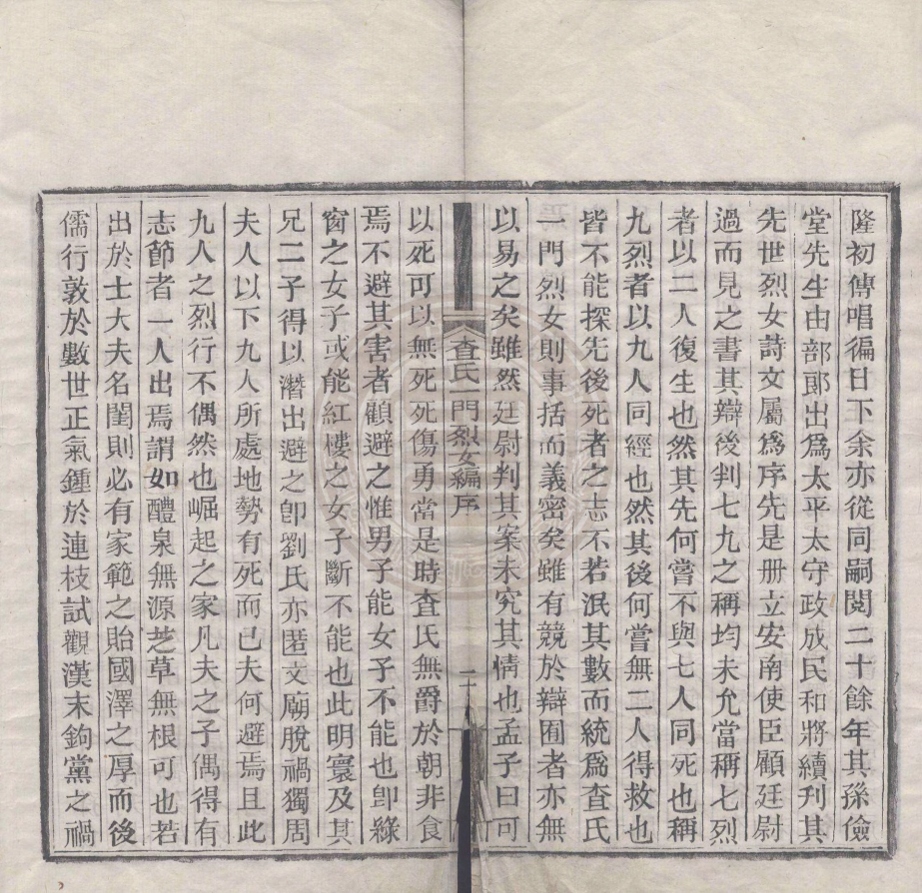 隆初傳唱徧日下余亦從同嗣閱二十餘年其孫儉
堂先生由部郎出爲太平太守政成民和將續刊其
先世烈女詩文屬爲序先是册立安南使臣顧廷尉
過而見之書其辯後判七九之稱均未允當稱七烈
者以二人復生也然其先何嘗不與七人同死也稱
九烈者以九人同經也然其後何嘗無二人得救也
皆不能探先後死者之志不若泯其數而統爲查氏
一門烈女則事括而義密矣雖有競於辯囿者亦無
以易之矣雖然廷尉判其案未究其情也孟子曰可
查氏一門烈女編序
二
以死可以無死死傷勇當是時查氏無爵於朝非食
焉不避其害者顧避之惟男子能女子不能也卽綠
窗之女子或能紅樓之女子斷不能也此明寰及其
兄二子得以潛出避之卽劉氏亦匿文廟脫禍獨周
夫人以下九人所處地勢有死而已夫何避焉且此
九人之烈行不偶然也崛起之家凡夫之子偶得有
志節者一人出焉謂如醴泉無源芝草無根可也若
出於士大夫名閨則必有家範之貽國澤之厚而後
儒行敦於數世正氣鍾於連枝試觀漢末鉤黨之禍